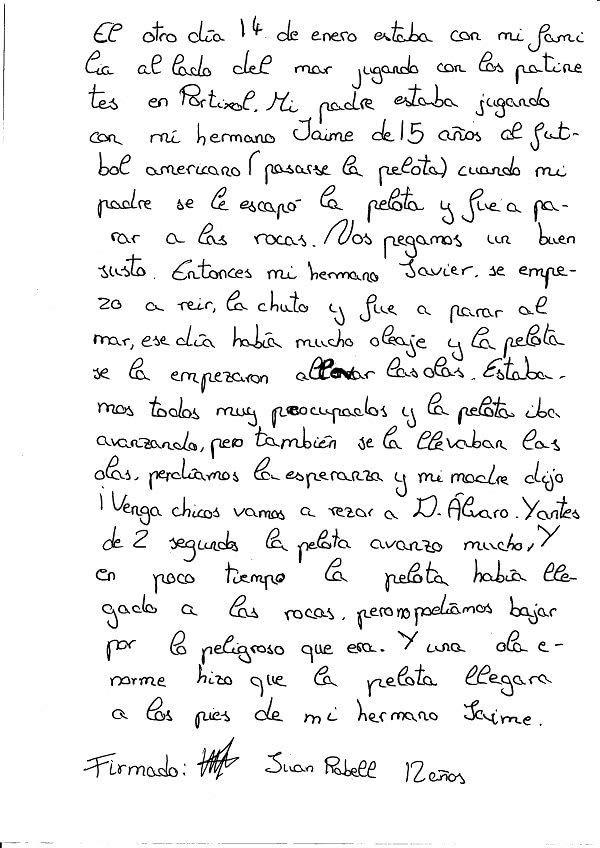 El otro día 14 de enero estaba con mi fami
lia al lado del mar jugando con los patine
tes en Portixol. Mi padre estaba jugando
con mi hermano Jaime de 15 años al fut-
bol americano (pasarse la pelota) cuando mi
padre se le escapó la pelota y fue a pa-
rar a las rocas. Nos pegamos un buen
susto. Entonces mi hermano Javier, se empe-
zo a reir, la chuto y fue a parar al
mar, ese día había mucho oleaje y la pelota
se la empezaron a llevar las olas. Estaba-
mos todos muy preocupados y la pelota iba
avanzando, pero también se la llevaban las
olas, perdíamos la esperanza y mi madre dijo
¡Venga chicos vamos a rezar a D. Álvaro. Y antes
de 2 segundos la pelota avanzo mucho, Y
en poco tiempo la pelota había lle-
gado a las rocas, pero no podíamos bajar
por lo peligroso que era. Y una ola e-
norme hizo que la pelota llegara
a los pies de mi hermano Jaime.
Firmado: Juan Rabell 12 años